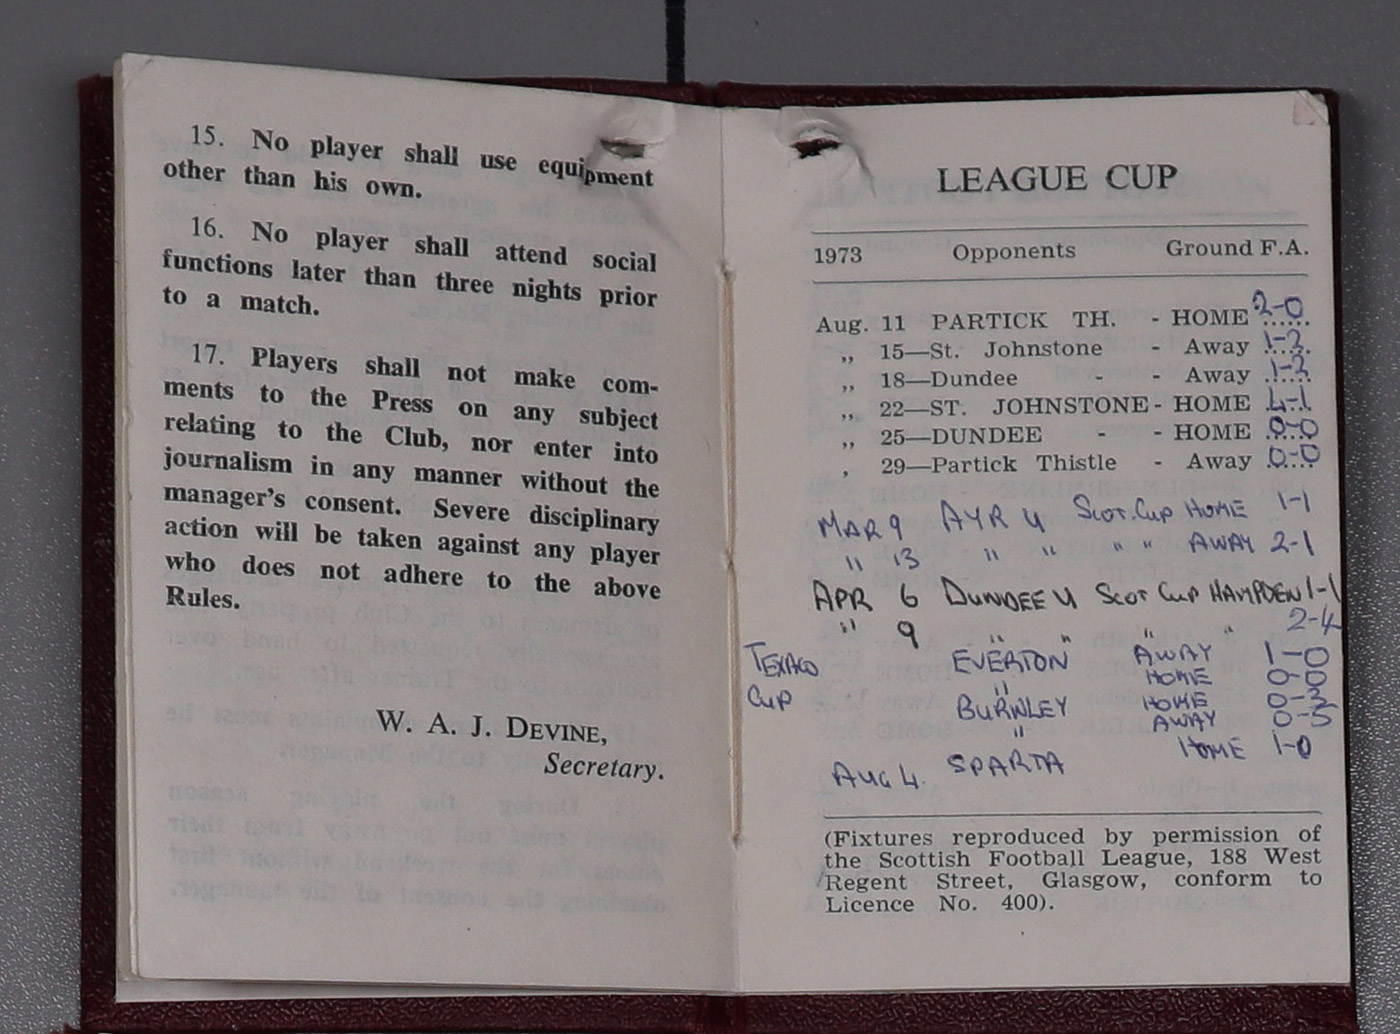 15. No player shall use equipment
other than his own.
16. No player shall attend social
functions later than three nights prior
to a match.
17. Players shall not make com-
ments to the Press on any subject
relating to the Club, nor enter into
journalism in any manner without the
manager's consent. Severe disciplinary
action will be taken against any player
who does not adhere to the above
Rules.
W. A. J. DEVINE,
Secretary.
LEAGUE CUP
1973 Opponents Ground F.A.
Aug. 11 PARTICK TH. - HOME 2-0
,, 15—St. Johnstone - Away 1-2
,, 18—Dundee - - Away 1-2
,, 22—ST. JOHNSTONE - HOME 4-1
,, 25—DUNDEE - - HOME 0-0
, 29—Partick Thistle - Away 0-0
MAR 9 AYR U SCOT. CUP HOME 1-1
" 13 " " " " AWAY 2-1
APR 6 DUNDEE U SCOT CUP HAMPDEN 1-1
" 9 " " " " 2-4
TEXACO EVERTON AWAY 1-0
" HOME 0-0
CUP BURNLEY HOME 0-3
" AWAY 0-5
AUG 4. SPARTA HOME 1-0
(Fixtures reproduced by permission of
the Scottish Football League, 188 West
Regent Street, Glasgow, conform to
Licence No. 400).